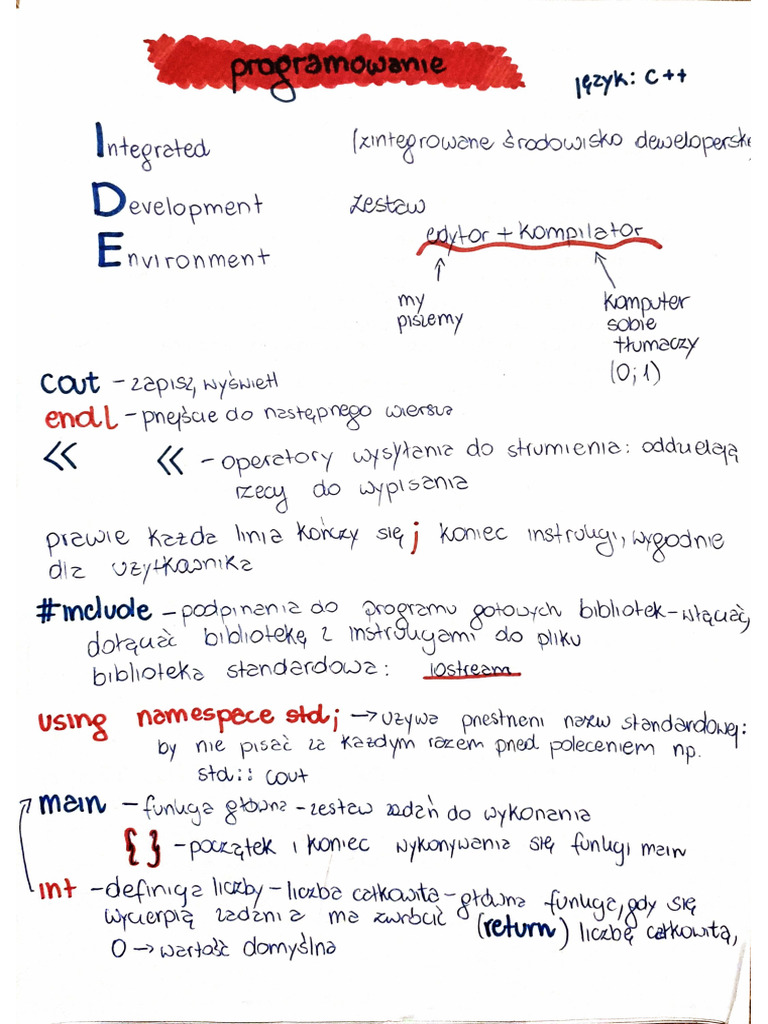 programowanie
język: C++
Integrated (zintegrowane środowisko dewelopersk
Development zestaw
edytor + kompilator
Environment
my piszemy
komputer sobie tłumaczy (0;1)
cout - zapisz, wyświetl
endl - przejście do następnego wiersza
<< << - operatory wysyłania do strumienia: oddzielają
rzecy do wypisania
prawie każda linia kończy się ; koniec instrukcji, wygodnie
dla użytkownika
#include - podpinania do programu gotowych bibliotek - włączać,
dołączać bibliotekę z instrukcjami do pliku
biblioteka standardowa: iostream
using namespace std; → używa przestrzeni nazw standardowej:
by nie pisać za każdym razem przed poleceniem np.
std:: cout
main - funkcja główna - zestaw zadań do wykonania
{ } - początek i koniec wykonywania się funkcji main
int - definicja liczby - liczba całkowita - główna funkcja, gdy się
wycierpią zadania ma zwrócić (return) liczbę całkowitą,
0 → wartość domyślna